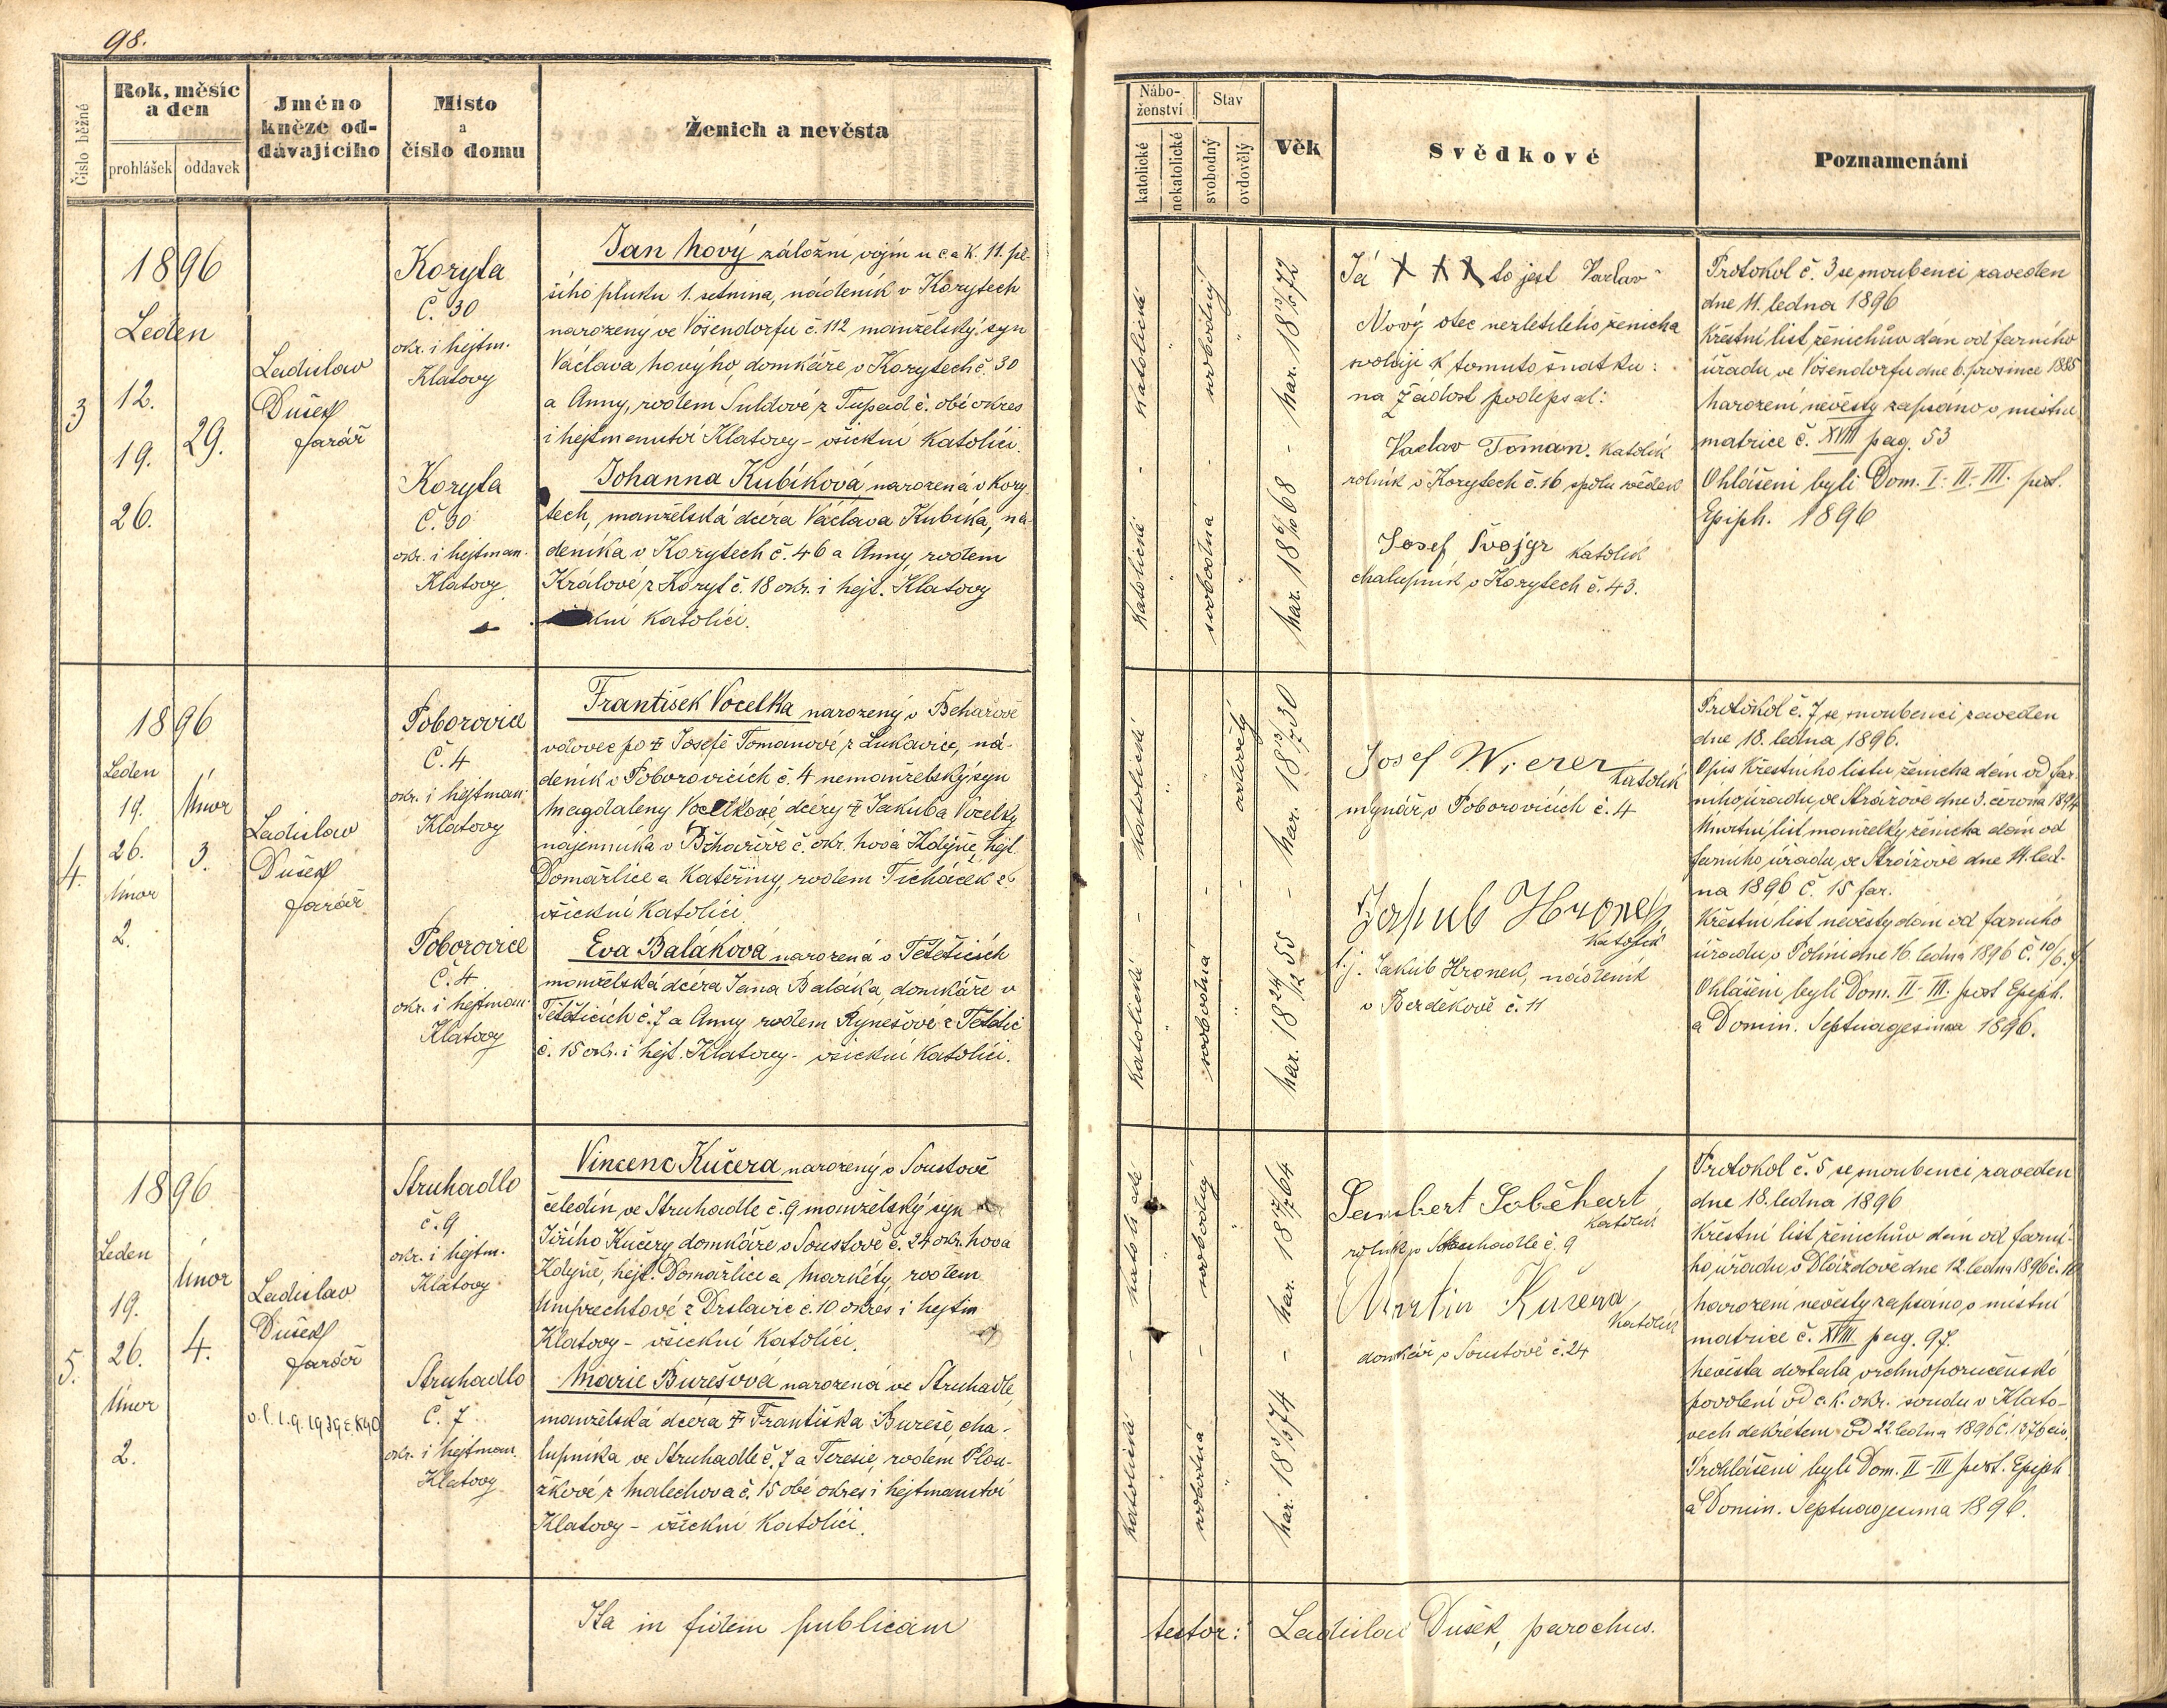 98.
Číslo běžné
Rok, měsíc
a den
prohlášek
oddavek
Jméno
kněze od-
dávajícího
Místo
a
číslo domu
Ženich a nevěsta
Nábo-
ženství
katolické
nekatolické
Stav
svobodný
ovdovělý
Věk
Svědkové
Poznamenání
3
1896
Leden
12.
19.
26.
29.
Ladislav
Dušek
farář
Koryta
Č. 30
okr. i hejtm.
Klatovy
Koryta
Č. 30
okr. i hejtman.
Klatovy
Jan Nový záložní vojín u c a k. 11. pě-
šího pluku 1. setnina, nádeník v Korytech
narozený ve Vösendorfu č. 112 manželský syn
Václava Nového, domkáře v Korytech č. 30
a Anny, rodem Suldové z Tupad č. obé okres
i hejtmanství Klatovy - všickni katolíci.
Johanna Kubíková narozená v Kory-
tech, manželská dcera Václava Kubíka, ná-
deníka v Korytech č. 46 a Anny, rodem
Králové z Koryt č. 18 okr. i hejt. Klatovy
katolíci.
katolické
svobodný
nar. 18 72
katolické
svobodná
nar. 18 68
Já X X X to jest Vaclav
Nový otec nezletilého ženicha
svoluji k tomuto sňatku:
na žádost podepsal:
Vaclav Toman. katolík
rolník v Korytech č. 16 spolu svědek
Josef Švojgr katolík
chalupník v Korytech č. 43.
Protokol č. 3 se snoubenci zaveden
dne 11. ledna 1896
Křestní list ženichův dán od farního
úřadu ve Vösendorfu dne 6. prosince 1885
Narození nevěsty zapsáno v místní
matrice č. XVIII pag. 53
Ohlášeni byli Dom. I. II. III. post.
Epiph. 1896
4.
1896
Leden
19.
26.
Únor
2.
Únor
3.
Ladislav
Dušek
farář
Poborovice
Č. 4
okr. i hejtman.
Klatovy
Poborovice
Č. 4
okr. i hejtman.
Klatovy
František Vocelka narozený v Běhařově
vdovec po ‡ Josefě Tomanové z Lukavice, ná-
deník v Poborovicích č. 4 nemanželský syn
Magdaleny Vocelkové, dcery ‡ Jakuba Vocelky
nájemníka v Běhařově č. okr. Nová Kdyně, hejt.
Domažlice a Kateřiny, rodem Ticháček z
všickni katolíci.
Eva Baláková narozená v Tětěticích
manželská dcera Jana Baláka, domkáře v
Tětěticích č. 7 a Anny, rodem Rynešové z Tětětic
č. 15 okr. i hejt. Klatovy - všickni katolíci.
katolické
ovdovělý
nar. 18 30
katolické
svobodná
nar. 18 24/12 55
Josef Wierer
katolík
mlynář v Poborovicích č. 4
Jakub Hronek
katolík
t.j. Jakub Hronek, nádeník
v Bezděkově č. 11
Protokol č. 7 se snoubenci zaveden
dne 18. ledna 1896.
Opis křestního listu ženicha dán od far-
ního úřadu ve Strážově dne 3. června 1894
Úmrtní list manželky ženicha dán od
farního úřadu ve Strážově dne 11. led-
na 1896 č. 15 far.
Křestní list nevěsty dán od farního
úřadu v Poléni dne 16. ledna 1896 č. 10/6.
Ohlášeni byli Dom. II - III. post Epiph.
a Domin. Septuagesima 1896.
5.
1896
Leden
19.
26.
Únor
2.
Únor
4.
Ladislav
Dušek
farář
Struhadlo
č. 9
okr. i hejtm.
Klatovy
Struhadlo
Č. 7
okr. i hejtman.
Klatovy
Vincenc Kučera narozený v Soustově
čeledín ve Struhadle č. 9 manželský syn
Jiřího Kučery, domkáře v Soustově č. 24 okr. Nová
Kdyně, hejt. Domažlice a Markéty, rodem
Umprechtové z Drslavic č. 10 okres i hejtm
Klatovy - všickni katolíci.
Marie Burešová narozená ve Struhadle,
manželská dcera ‡ Františka Bureše, cha-
lupníka ve Struhadle č. 7 a Teresie, rodem Plou-
žkové z Malechova č. 15 obé okres i hejtmanství
Klatovy - všickni katolíci.
svobodný
nar. 18 64
katolická
svobodná
nar. 18 74
Lambert Soběhart
katolík
rolník v Struhadle č. 9
Martin Kučera
katolík
domkář v Soustově č. 24
Protokol č. 5 se snoubenci zaveden
dne 18. ledna 1896
Křestní list ženichův dán od farní-
ho úřadu v Dlážďově dne 12. ledna 1896 č. 10
Narození nevěsty zapsáno v místní
matrice č. XVIII pag. 97.
Nevěsta dostala vrchnoporučenské
povolení od c. k. okr. soudu v Klato-
vech dekretem od 22. ledna 1896 č. 1376 civ.
Prohlášeni byli Dom. II - III post. Epiph
a Domin. Septuagesima 1896.
Ita in fidem publicam
testor: Ladislav Dušek, parochus.